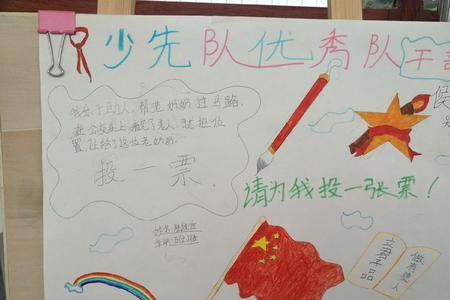 少先队优秀队干部
候
我乐于助人,帮老奶奶过马路,
在公交车上,碰见了老人,就把位
置,让给了这位老奶奶...
投一票.
请为我投一张票!
姓名:
立君子品
做有德人